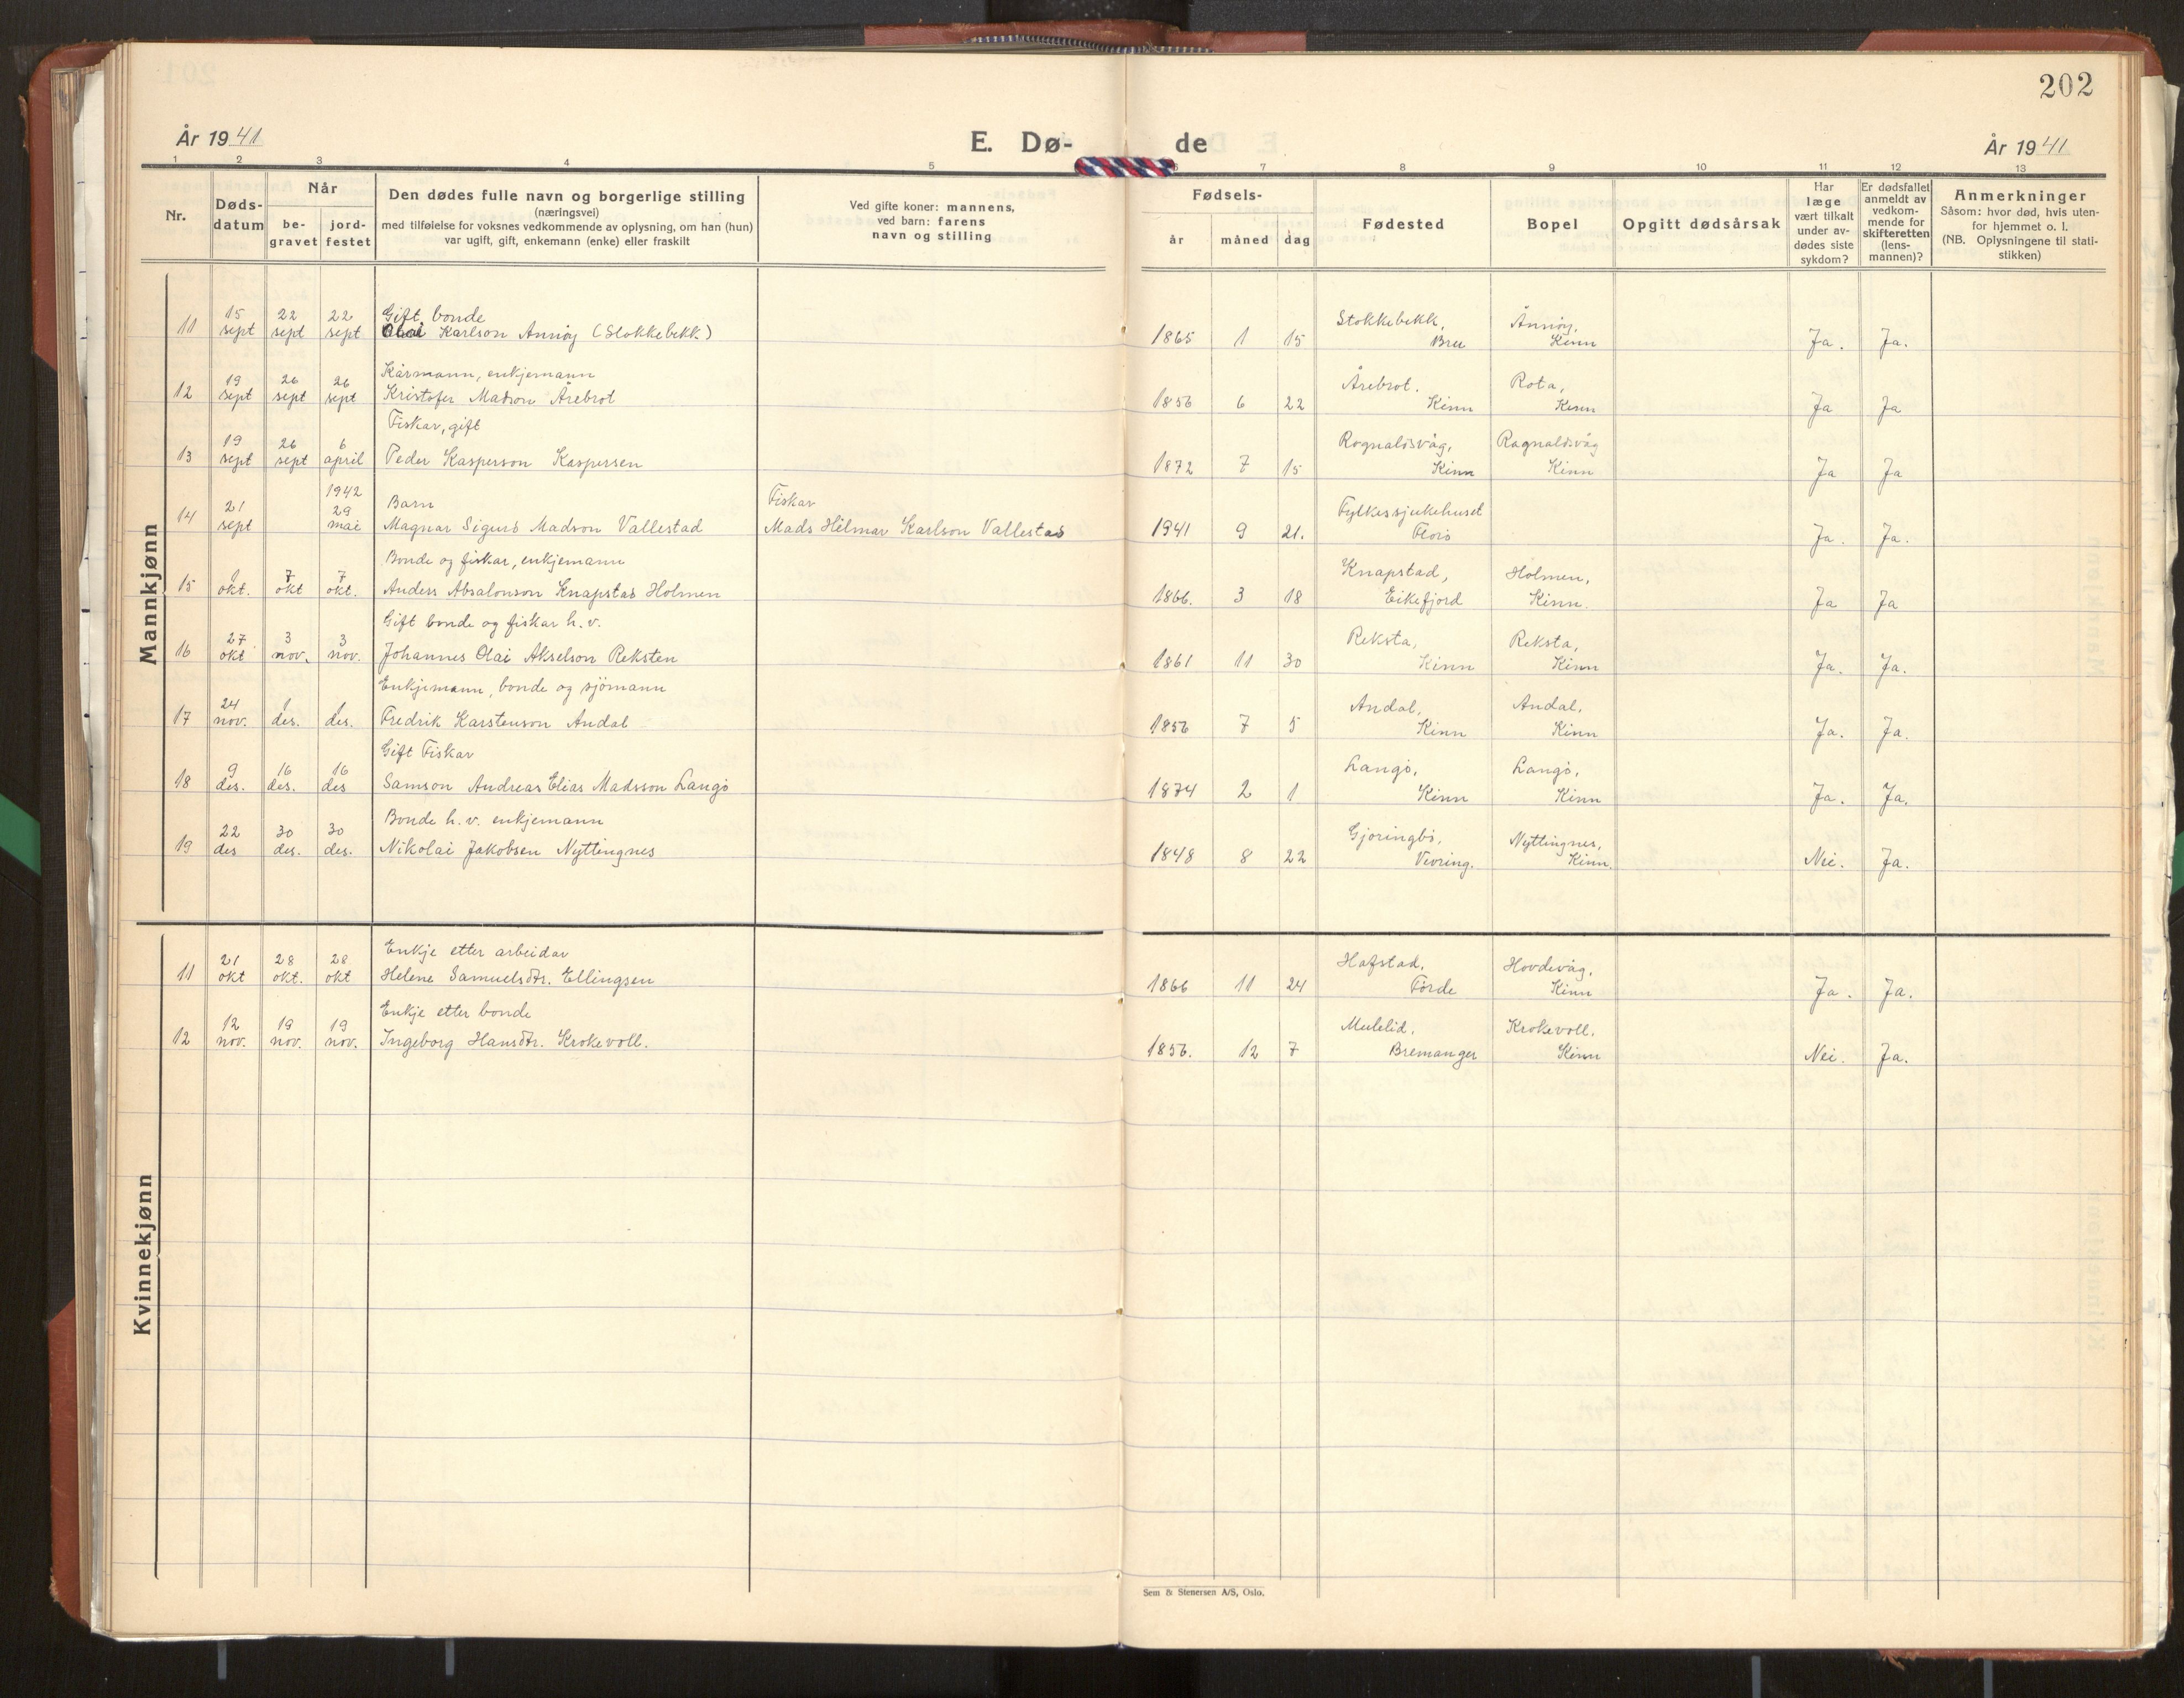 202
År 1941
E. Dø-
de
År 1941
1 2 3 4 5 6 7 8 9 10 11 12 13
Nr.
Døds-
datum
Når
be-
gravet
jord-
festet
Den dødes fulle navn og borgerlige stilling
(næringsvei)
med tilføielse for voksnes vedkommende av oplysning, om han (hun)
var ugift, gift, enkemann (enke) eller fraskilt
Ved gifte koner: mannens,
ved barn: farens
navn og stilling
Fødsels-
år måned dag
Fødested
Bopel
Opgitt dødsårsak
Har
læge
vært tilkalt
under av-
dødes siste
sykdom?
Er dødsfallet
anmeldt av
vedkom-
mende for
skifteretten
(lens-
mannen)?
Anmerkninger
Såsom: hvor død, hvis uten-
for hjemmet o. l.
(NB. Oplysningene til stati-
stikken)
Mannkjønn
15 22 22 Gift bonde Stokkebekk, Ånnøy,
11 sept sept sept Olai Karlson Annøy (Stokkebekk) 1865 1 15 Bru Kinn Ja. Ja.
19 26 26 Kårmann, enkjemann Årebrot. Rota,
12 sept sept sept Kristofer Madson Årebrot 1856 6 22 Kinn Kinn Ja Ja
19 26 6 Fiskar, gift Rognaldsvåg, Rognaldsvåg
13 sept sept april Peder Kasperson Kaspersen 1872 7 15 Kinn Kinn Ja Ja
1942
21 29 Barn Fiskar Fylkessjukehuset
14 sept mai Magnar Sigurd Madson Vallestad Mads Hilmar Karlson Vallestad 1941 9 21. Florø Ja. Ja.
1 7 7 Bonde og fiskar, enkjemann Knapstad, Holmen,
15 okt. okt okt. Anders Absalonson Knapstad Holmen 1866. 3 18 Eikefjord Kinn. Ja Ja
27 3 3 Gift bonde og fiskar h. v. Reksta, Reksta,
16 okt nov. nov. Johannes Olai Akselson Reksten 1861 11 30 Kinn Kinn Ja. Ja.
24 1 1 Enkjemann, bonde og sjömann Andal, Andal,
17 nov. des. des. Fredrik Karstenson Andal 1856 7 5 Kinn Kinn Ja. Ja.
9 16 16 Gift Fiskar Langö, Langö,
18 des. des. des Samson Andreas Elias Madsson Langö 1874 2 1 Kinn Kinn Ja. Ja.
22 30 30 Bonde h. v. enkjemann Gjöringbö, Nyttingnes,
19 des des. des. Nikolai Jakobsen Nyttingnes 1848 8 22 Vevring. Kinn. Nei. Ja.
Kvinnekjønn
21 28 28 Enkje etter arbeidar Hafstad, Hovdevåg,
11 okt okt. okt Helene Samuelsdtr. Ellingsen 1866 11 24 Förde Kinn Ja. Ja.
12 19 19 Enkje etter bonde Mulelid, Krokevoll.
12 nov. nov. nov. Ingeborg Hansdtr. Krokevoll. 1856. 12 7 Bremanger Kinn Nei. Ja.
Sem & Stenersen A/S, Oslo.